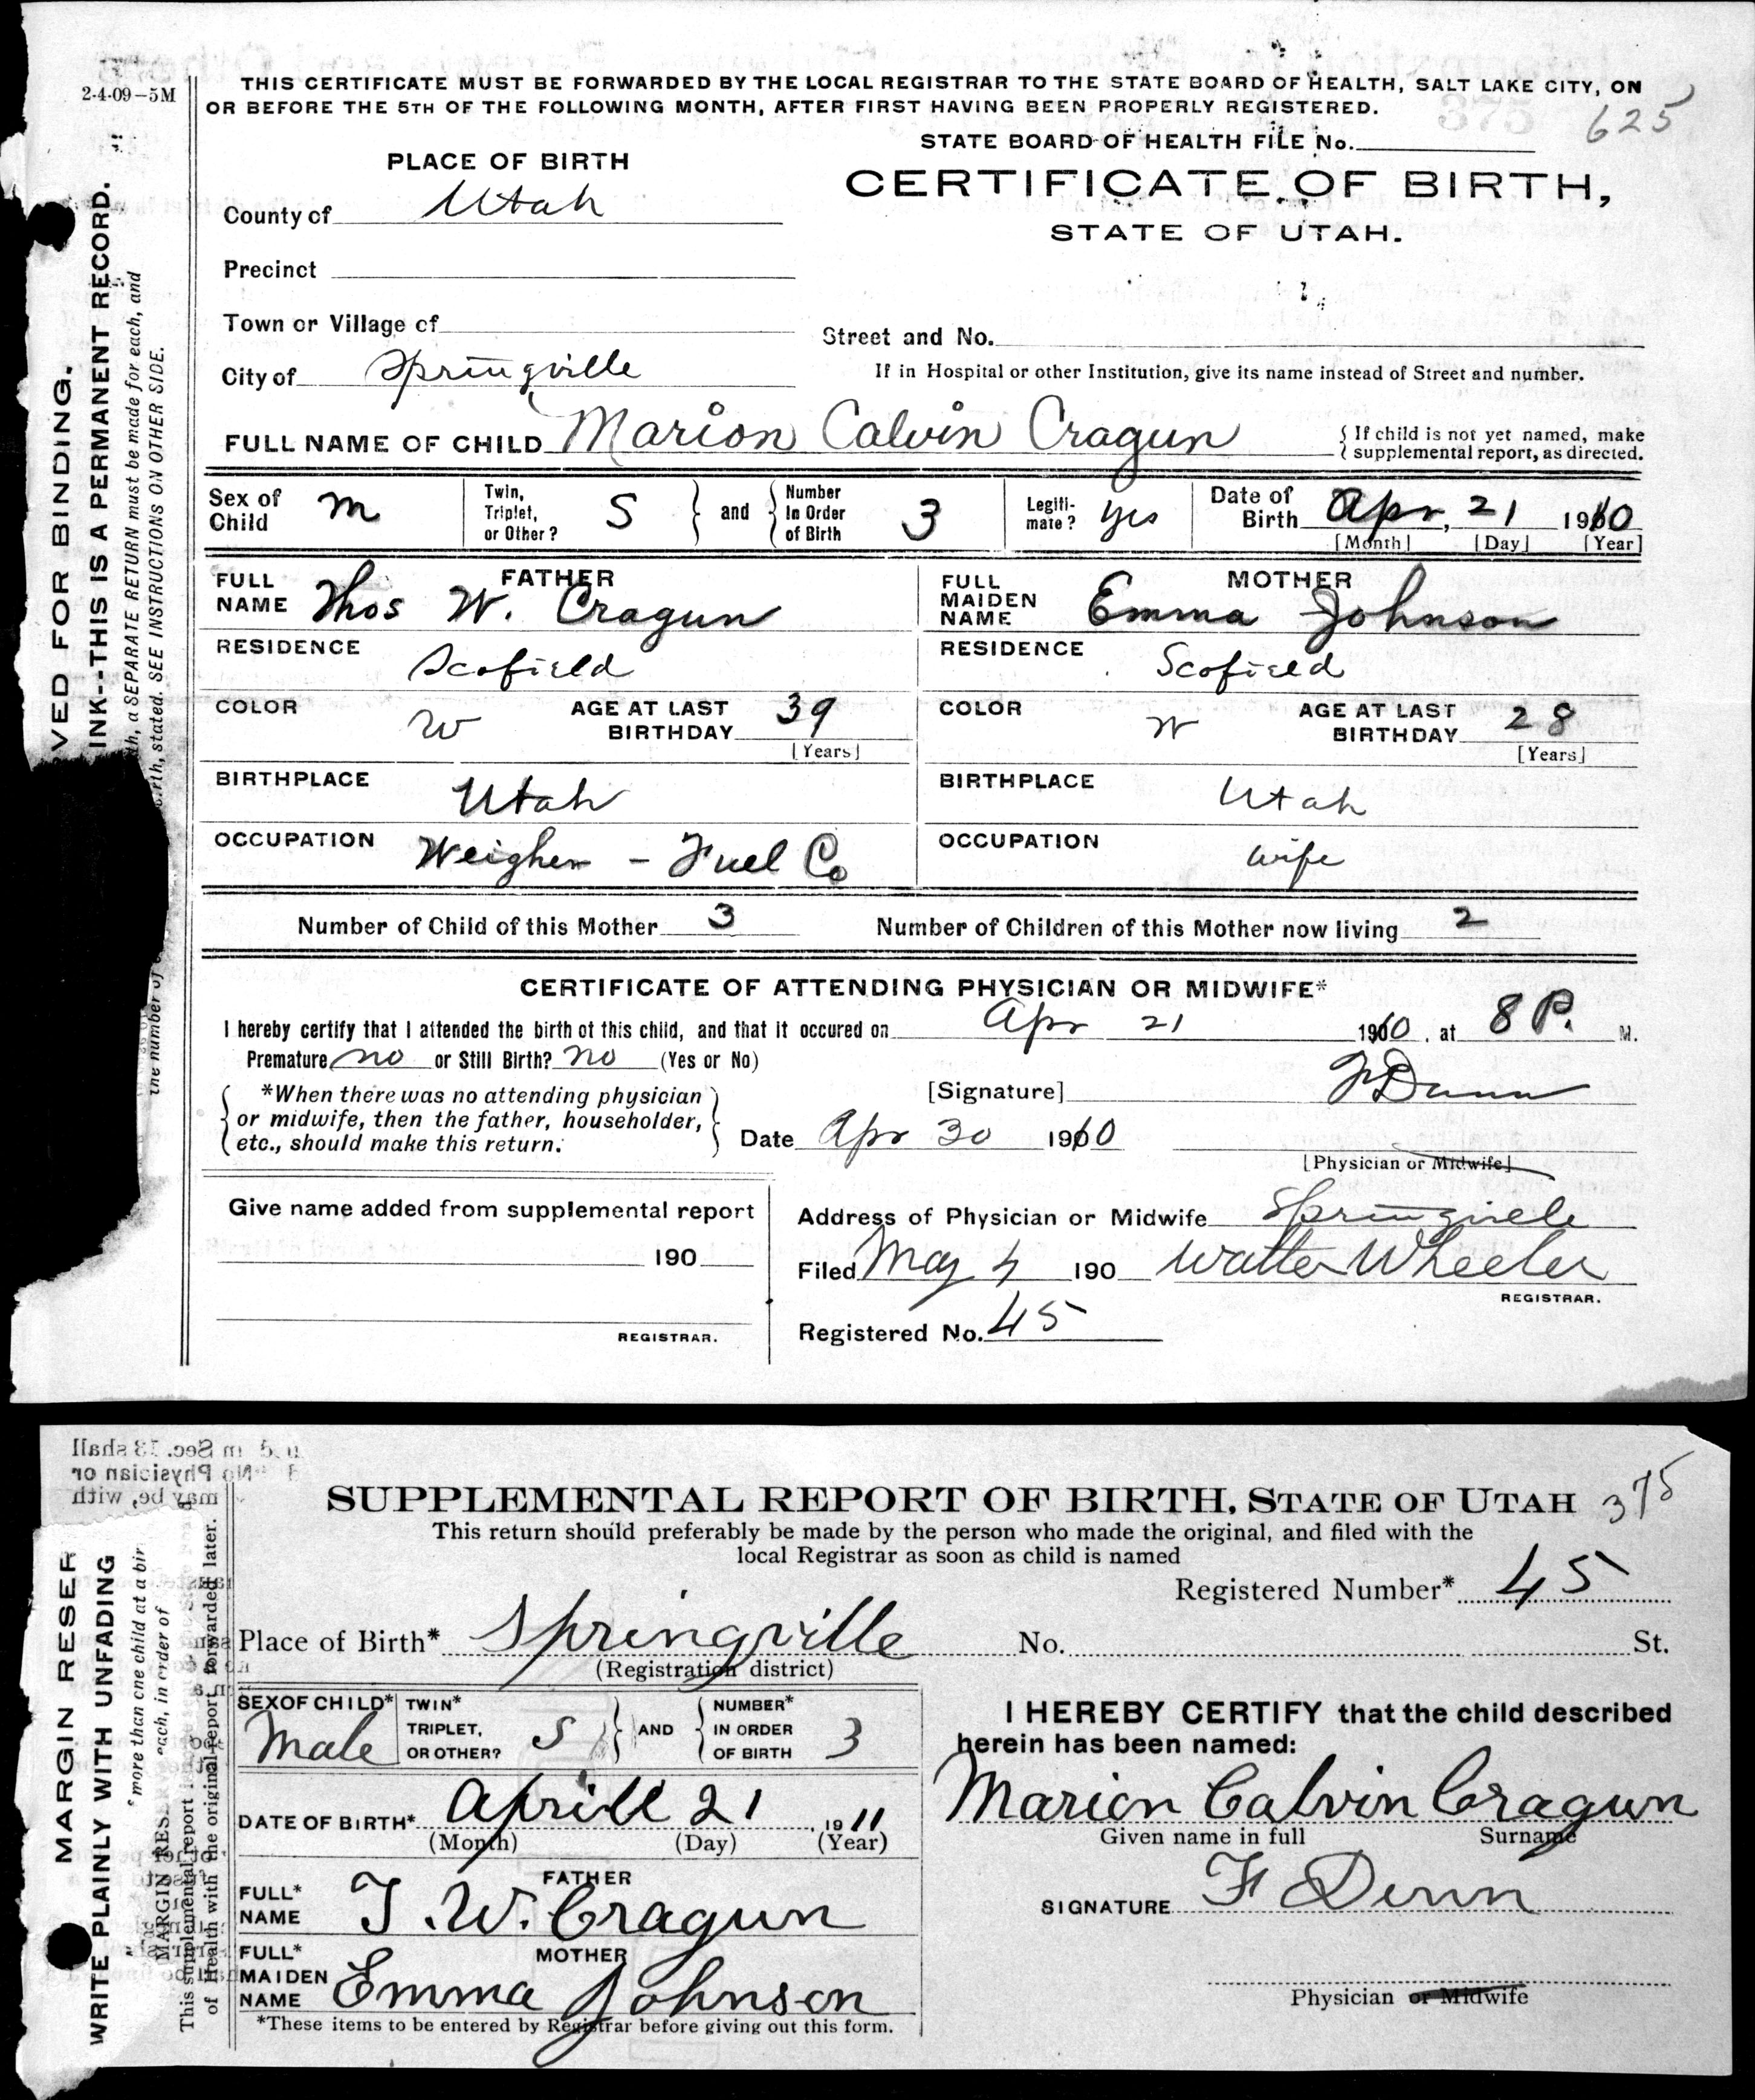 2-4-09-5M
THIS CERTIFICATE MUST BE FORWARDED BY THE LOCAL REGISTRAR TO THE STATE BOARD OF HEALTH, SALT LAKE CITY, ON
OR BEFORE THE 5TH OF THE FOLLOWING MONTH, AFTER FIRST HAVING BEEN PROPERLY REGISTERED.
625
STATE BOARD OF HEALTH FILE No.
CERTIFICATE OF BIRTH,
STATE OF UTAH.
PLACE OF BIRTH
County of Utah
Precinct
Town or Village of
Street and No.
City of Springville
If in Hospital or other Institution, give its name instead of Street and number.
FULL NAME OF CHILD Marion Calvin Cragun
{ If child is not yet named, make
supplemental report, as directed.
Sex of Child m
Twin, Triplet, or Other? S } and { Number In Order of Birth 3
Legiti-mate? yes
Date of Birth Apr, 21 1910
[Month] [Day] [Year]
FATHER
FULL NAME Thos W. Cragun
RESIDENCE Scofield
COLOR W AGE AT LAST BIRTHDAY 39
[Years]
BIRTHPLACE Utah
OCCUPATION Weigher - Fuel Co
MOTHER
FULL MAIDEN NAME Emma Johnson
RESIDENCE Scofield
COLOR W AGE AT LAST BIRTHDAY 28
[Years]
BIRTHPLACE Utah
OCCUPATION wife
Number of Child of this Mother 3 Number of Children of this Mother now living 2
CERTIFICATE OF ATTENDING PHYSICIAN OR MIDWIFE*
I hereby certify that I attended the birth of this child, and that it occured on Apr 21 1910, at 8 P. M.
Premature no or Still Birth? no (Yes or No)
{ *When there was no attending physician
or midwife, then the father, householder,
etc., should make this return. }
[Signature] F Dunn
Date Apr 30 1910
[Physician or Midwife]
Give name added from supplemental report
190
REGISTRAR.
Address of Physician or Midwife Springville
Filed May 4 190 Walter Wheeler
REGISTRAR.
Registered No. 45
VED FOR BINDING.
INK--THIS IS A PERMANENT RECORD.
th, a SEPARATE RETURN must be made for each, and
birth, stated. SEE INSTRUCTIONS ON OTHER SIDE.
the number of
SUPPLEMENTAL REPORT OF BIRTH, STATE OF UTAH 375
This return should preferably be made by the person who made the original, and filed with the
local Registrar as soon as child is named
Registered Number* 45
Place of Birth* Springville No. St.
(Registration district)
SEX OF CHILD* Male
TWIN* TRIPLET, OR OTHER? S } AND { NUMBER* IN ORDER OF BIRTH 3
DATE OF BIRTH* Aprill 21, 1911
(Month) (Day) (Year)
FATHER
FULL* NAME T. W. Cragun
MOTHER
FULL* MAIDEN NAME Emma Johnson
*These items to be entered by Registrar before giving out this form.
I HEREBY CERTIFY that the child described
herein has been named:
Marion Calvin Cragun
Given name in full Surname
SIGNATURE F Dunn
Physician or Midwife
MARGIN RESER
WRITE PLAINLY WITH UNFADING
more than one child at a bir
each, in order of
MARGIN RESERV
This supplemental report
of Health with the original report forwarded later.